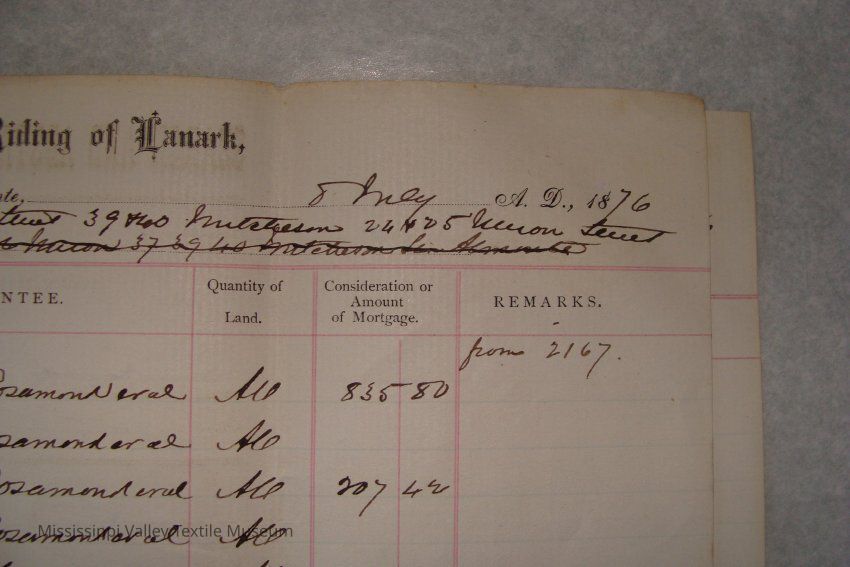 Riding of Lanark,
ate, 8 July A. D., 1876
39 & 40 Mitcheson 24 & 25 Union Street
Union 37 39 40 Mitcheson
NTEE.
Quantity of Land.
Consideration or Amount of Mortgage.
REMARKS.
from 2167.
osamond et al All 835 80
osamond et al All
osamond et al All 207 42
osamond et al All
Mississippi Valley Textile Museum